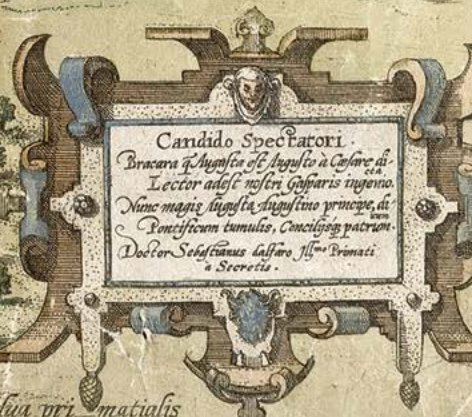 Candido Spectatori
Bracara q̃ Augusta est Augusto à Cæsare di-
cta
Lector adest nostri Gasparis ingenio.
Nunc magis Augusta Augustino principe, di-
uum
Pontificum tumulis, Concilijsq; patrum.
Doctor Sebastianus dalfaro Jll.mo Primati
a Secretis.
pri matialis